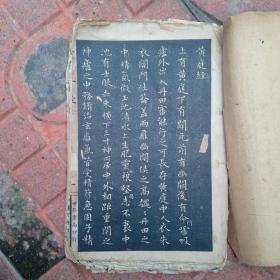 黄庭經
上有黄庭下有關元前有幽闕後有命門噓吸
廬外出入丹田審能行之可長存黄庭中人衣朱
衣關門壯籥蓋兩扉幽闕俠之高魏魏丹田之
中精氣微玉池清水上生肥靈根堅志不衰中
池有士服赤朱横下三寸神所居中外相距重閉之
神廬之中務脩治玄癰氣管受精符急固子精